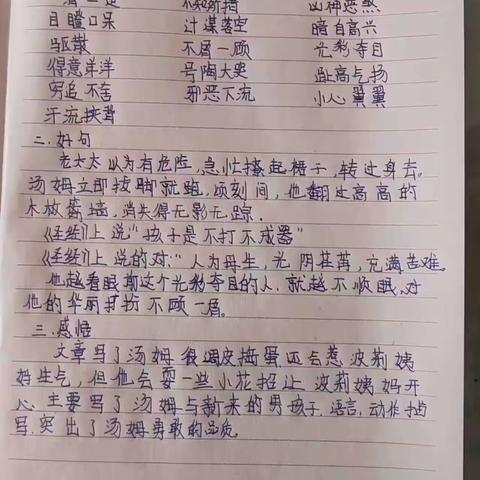 目瞪口呆 计谋落空 暗自高兴
驱散 不屑一顾 光彩夺目
得意洋洋 号啕大哭 趾高气扬
穷追不舍 邪恶下流 小心翼翼
汗流挟背
二.好句
老太太以为有危险,急忙撩起裙子,转过身去。
汤姆立即拔脚就跑,顷刻间,他翻过高高的
木板篱墙,消失得无影无踪.
《圣经》上说"孩子是不打不成器"
《圣经》上说的对:"人为母生,光阴荏苒,充满苦难。
他越看眼前这个光彩夺目的人.就越不顺眼.对
他的华丽打扮不顾一屑。
三.感悟
文章写了汤姆很调皮捣蛋还会惹波莉姨
妈生气,但他会耍一些小花招让波莉姨妈开
心.主要写了汤姆与新来的男孩子.语言,动作描
写.突出了汤姆勇敢的品质.